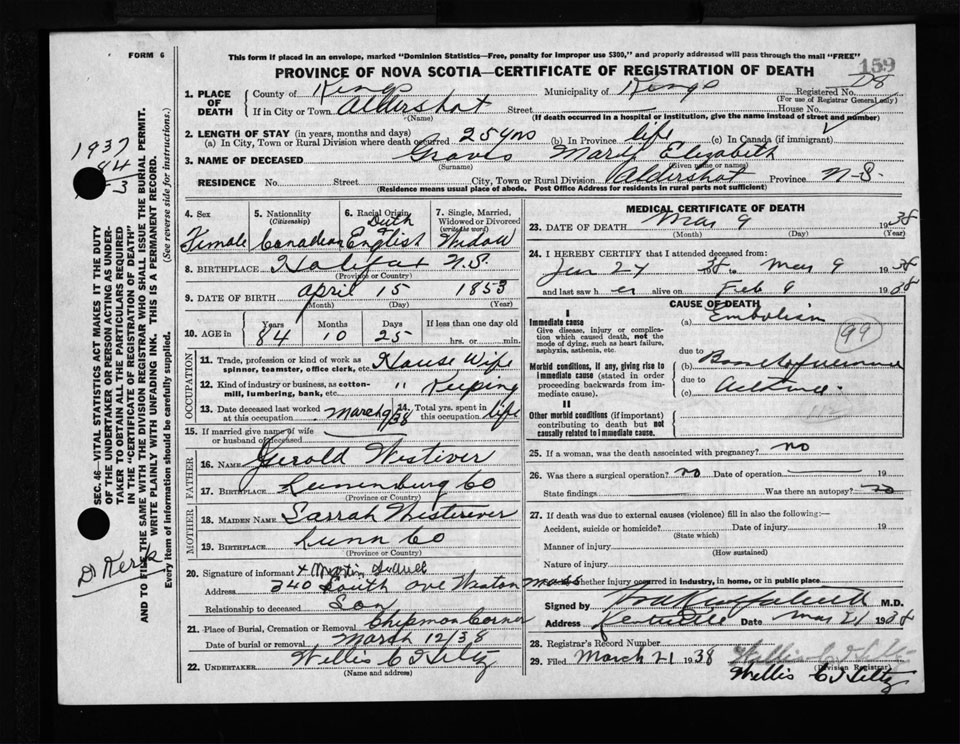 FORM 6
This form if placed in an envelope, marked "Dominion Statistics—Free, penalty for improper use $300," and properly addressed will pass through the mail "FREE"
159
PROVINCE OF NOVA SCOTIA—CERTIFICATE OF REGISTRATION OF DEATH
1. PLACE OF DEATH
County of Kings Municipality of Kings Registered No.
(For use of Registrar General only)
If in City or Town Aldershot Street House No.
(Name) (If death occurred in a hospital or institution, give the name instead of street and number)
2. LENGTH OF STAY (in years, months and days)
(a) In City, Town or Rural Division where death occurred 25 yrs (b) In Province life (c) In Canada (if immigrant)
3. NAME OF DECEASED Graves Mary Elizabeth
(Surname) (Given name or names)
RESIDENCE No. Street City, Town or Rural Division Aldershot Province N-S.
(Residence means usual place of abode. Post Office Address for residents in rural parts not sufficient)
1937
84
F3
D Kerr
SEC. 46—VITAL STATISTICS ACT MAKES IT THE DUTY
OF THE UNDERTAKER OR PERSON ACTING AS UNDER-
TAKER TO OBTAIN ALL THE PARTICULARS REQUIRED
IN THE "CERTIFICATE OF REGISTRATION OF DEATH"
AND TO FILE THE SAME WITH THE DIVISION REGISTRAR WHO SHALL ISSUE THE BURIAL PERMIT.
WRITE PLAINLY WITH UNFADING INK. THIS IS A PERMANENT RECORD.
Every item of information should be carefully supplied. (See reverse side for instructions.)
4. Sex 5. Nationality (Citizenship) 6. Racial Origin 7. Single, Married, Widowed or Divorced (write the word)
Female Canadian Duth & English Widow
8. BIRTHPLACE Halifax N.S.
(Province or Country)
9. DATE OF BIRTH April 15 1853
(Month) (Day) (Year)
10. AGE in Years Months Days If less than one day old
84 10 25 hrs. or min.
OCCUPATION
11. Trade, profession or kind of work as spinner, teamster, office clerk, etc. House Wife
12. Kind of industry or business, as cotton-mill, lumbering, bank, etc. " Keeping
13. Date deceased last worked at this occupation March 9/38 14. Total yrs. spent in this occupation life
15. If married give name of wife or husband of deceased
FATHER
16. NAME Gerold Westiver
17. BIRTHPLACE Lunenburg Co
(Province or Country)
MOTHER
18. MAIDEN NAME Sarrah Wisterever
19. BIRTHPLACE Lunn Co
(Province or Country)
20. Signature of informant
Address 340 South Ave Weston Mass
Relationship to deceased Son
21. Place of Burial, Cremation or Removal Chipmon Corner
Date of burial or removal March 12/38
22. UNDERTAKER Willis C Hiltz
(Name and address)
MEDICAL CERTIFICATE OF DEATH
23. DATE OF DEATH Mar 9 1938
(Month) (Day) (Year)
24. I HEREBY CERTIFY that I attended deceased from:
Jan 27 38 to Mar 9 1938
and last saw her alive on Feb 9 1938
CAUSE OF DEATH
I
Immediate cause (a) Embolism
99
Give disease, injury or complication which caused death, not the mode of dying, such as heart failure, asphyxia, asthenia, etc.
due to
Morbid conditions, if any, giving rise to immediate cause (stated in order proceeding backwards from immediate cause).
(b)
due to
(c)
II
Other morbid conditions (if important) contributing to death but not causally related to immediate cause.
25. If a woman, was the death associated with pregnancy? no
26. Was there a surgical operation? no Date of operation 19
State findings Was there an autopsy? no
27. If death was due to external causes (violence) fill in also the following:—
Accident, suicide or homicide? Date of injury 19
(State which)
Manner of injury
(How sustained)
Nature of injury
whether injury occurred in industry, in home, or in public place
Signed by M.D.
Address Kentville Date Mar 21 1938
28. Registrar's Record Number
29. Filed March 21 1938 Willis C Hiltz
(Division Registrar)
Willis C Hiltz